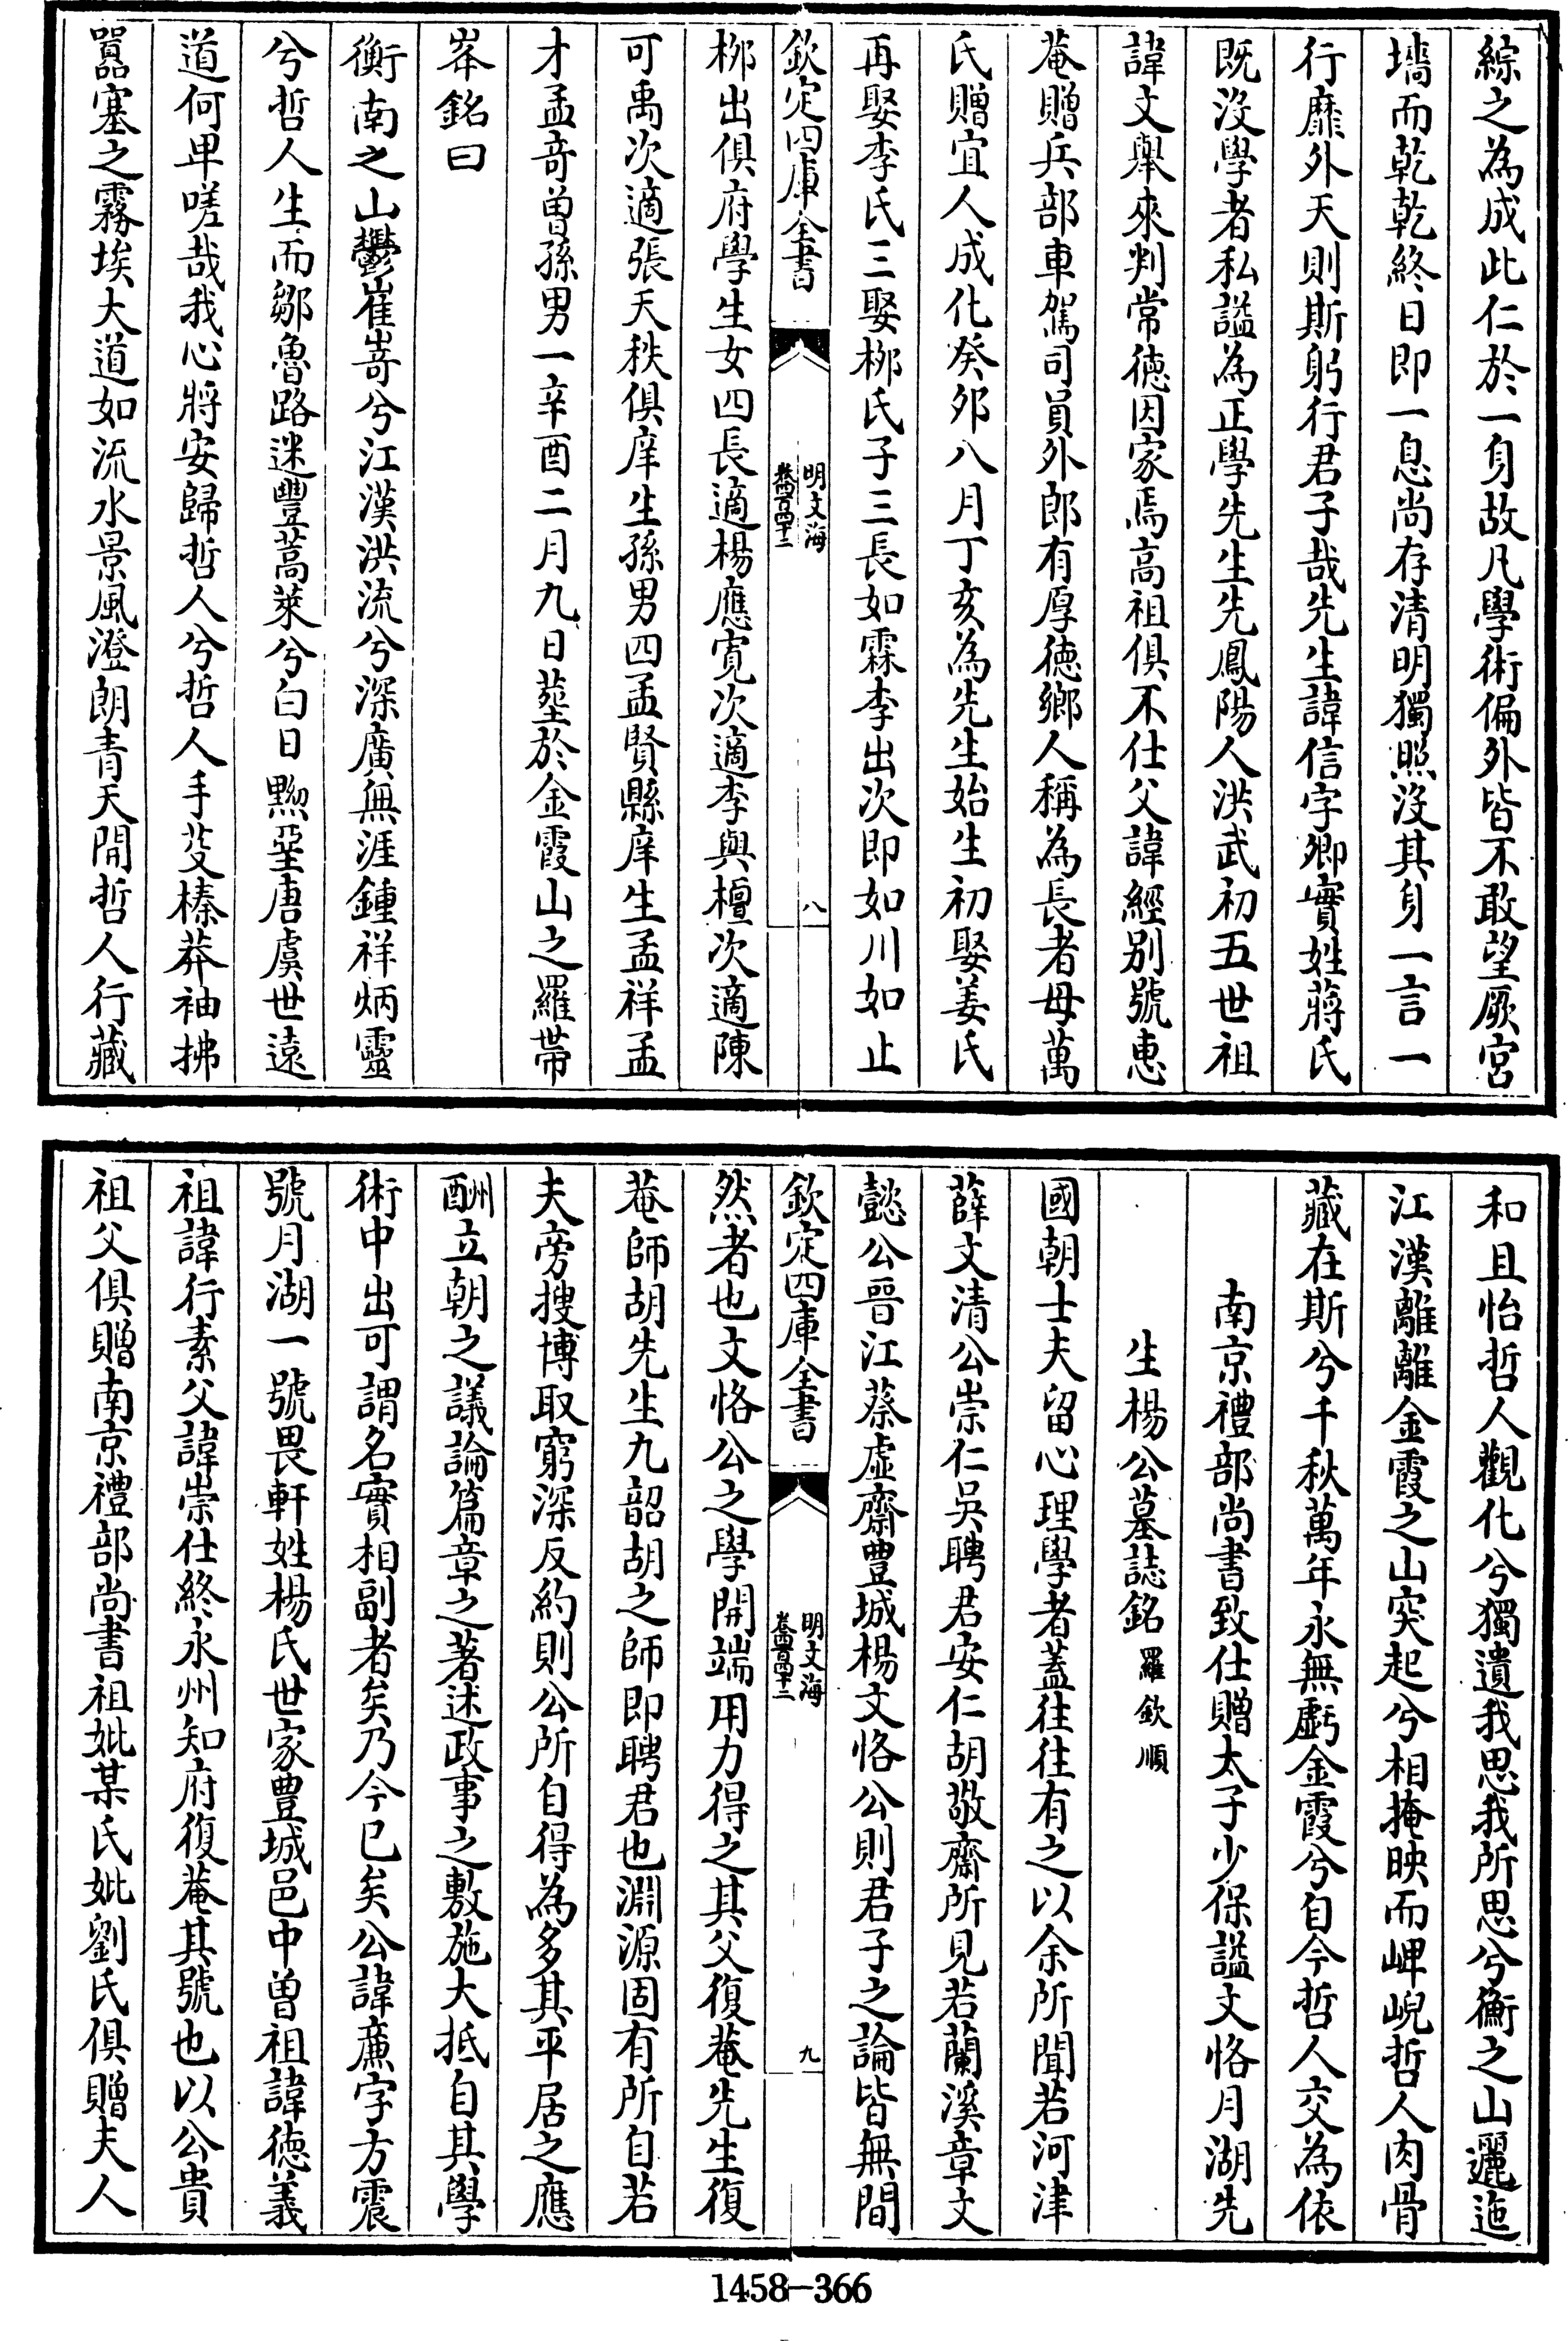 綜之為成此仁於一身故凡學術偏外皆不敢望厥宮
墻而乾乾終日即一息尚存清明獨照沒其身一言一
行靡外天則斯躬行君子哉先生諱信字卿實姓蔣氏
既沒學者私謚為正學先生先鳳陽人洪武初五世祖
諱文舉來判常徳因家焉高祖俱不仕父諱經别號恵
菴贈兵部車駕司員外郎有厚徳鄉人稱為長者母萬
氏贈宜人成化癸邜八月丁亥為先生始生初娶姜氏
再娶李氏三娶栁氏子三長如霖李出次即如川如止
欽定四庫全書
明文海
卷四百四十二
八
栁出俱府學生女四長適楊應寛次適李與檀次適陳
可禹次適張天秩俱庠生孫男四孟賢縣庠生孟祥孟
才孟竒曽孫男一辛酉二月九日塟於金霞山之羅帶
峯銘曰
衡南之山鬱崔嵜兮江漢洪流兮深廣無涯鍾祥炳靈
兮哲人生而鄒魯路迷豐蒿萊兮白日黝堊唐虞世逺
道何卑嗟哉我心將安歸哲人兮哲人手芟榛莽袖拂
嚚塞之霧埃大道如流水景風澄朗青天開哲人行藏
和且怡哲人觀化兮獨遺我思我所思兮衡之山邐迤
江漢離離金霞之山突起兮相掩映而崥崺哲人肉骨
藏在斯兮千秋萬年永無虧金霞兮自今哲人交為依
南京禮部尚書致仕贈太子少保謚文恪月湖先
生楊公墓誌銘 羅欽順
國朝士夫留心理學者蓋往往有之以余所聞若河津
薛文清公崇仁吳聘君安仁胡敬齋所見若蘭溪章文
懿公晉江蔡虛齋豊城楊文恪公則君子之論皆無間
欽定四庫全書
明文海
卷四百四十二
九
然者也文恪公之學開端用力得之其父復菴先生復
菴師胡先生九韶胡之師即聘君也淵源固有所自若
夫旁搜博取窮深反約則公所自得為多其平居之應
酬立朝之議論篇章之著述政事之敷施大抵自其學
術中出可謂名實相副者矣乃今已矣公諱亷字方震
號月湖一號畏軒姓楊氏世家豊城邑中曽祖諱徳義
祖諱行素父諱崇仕終永州知府復菴其號也以公貴
祖父俱贈南京禮部尚書祖妣某氏妣劉氏俱贈夫人
1458—366